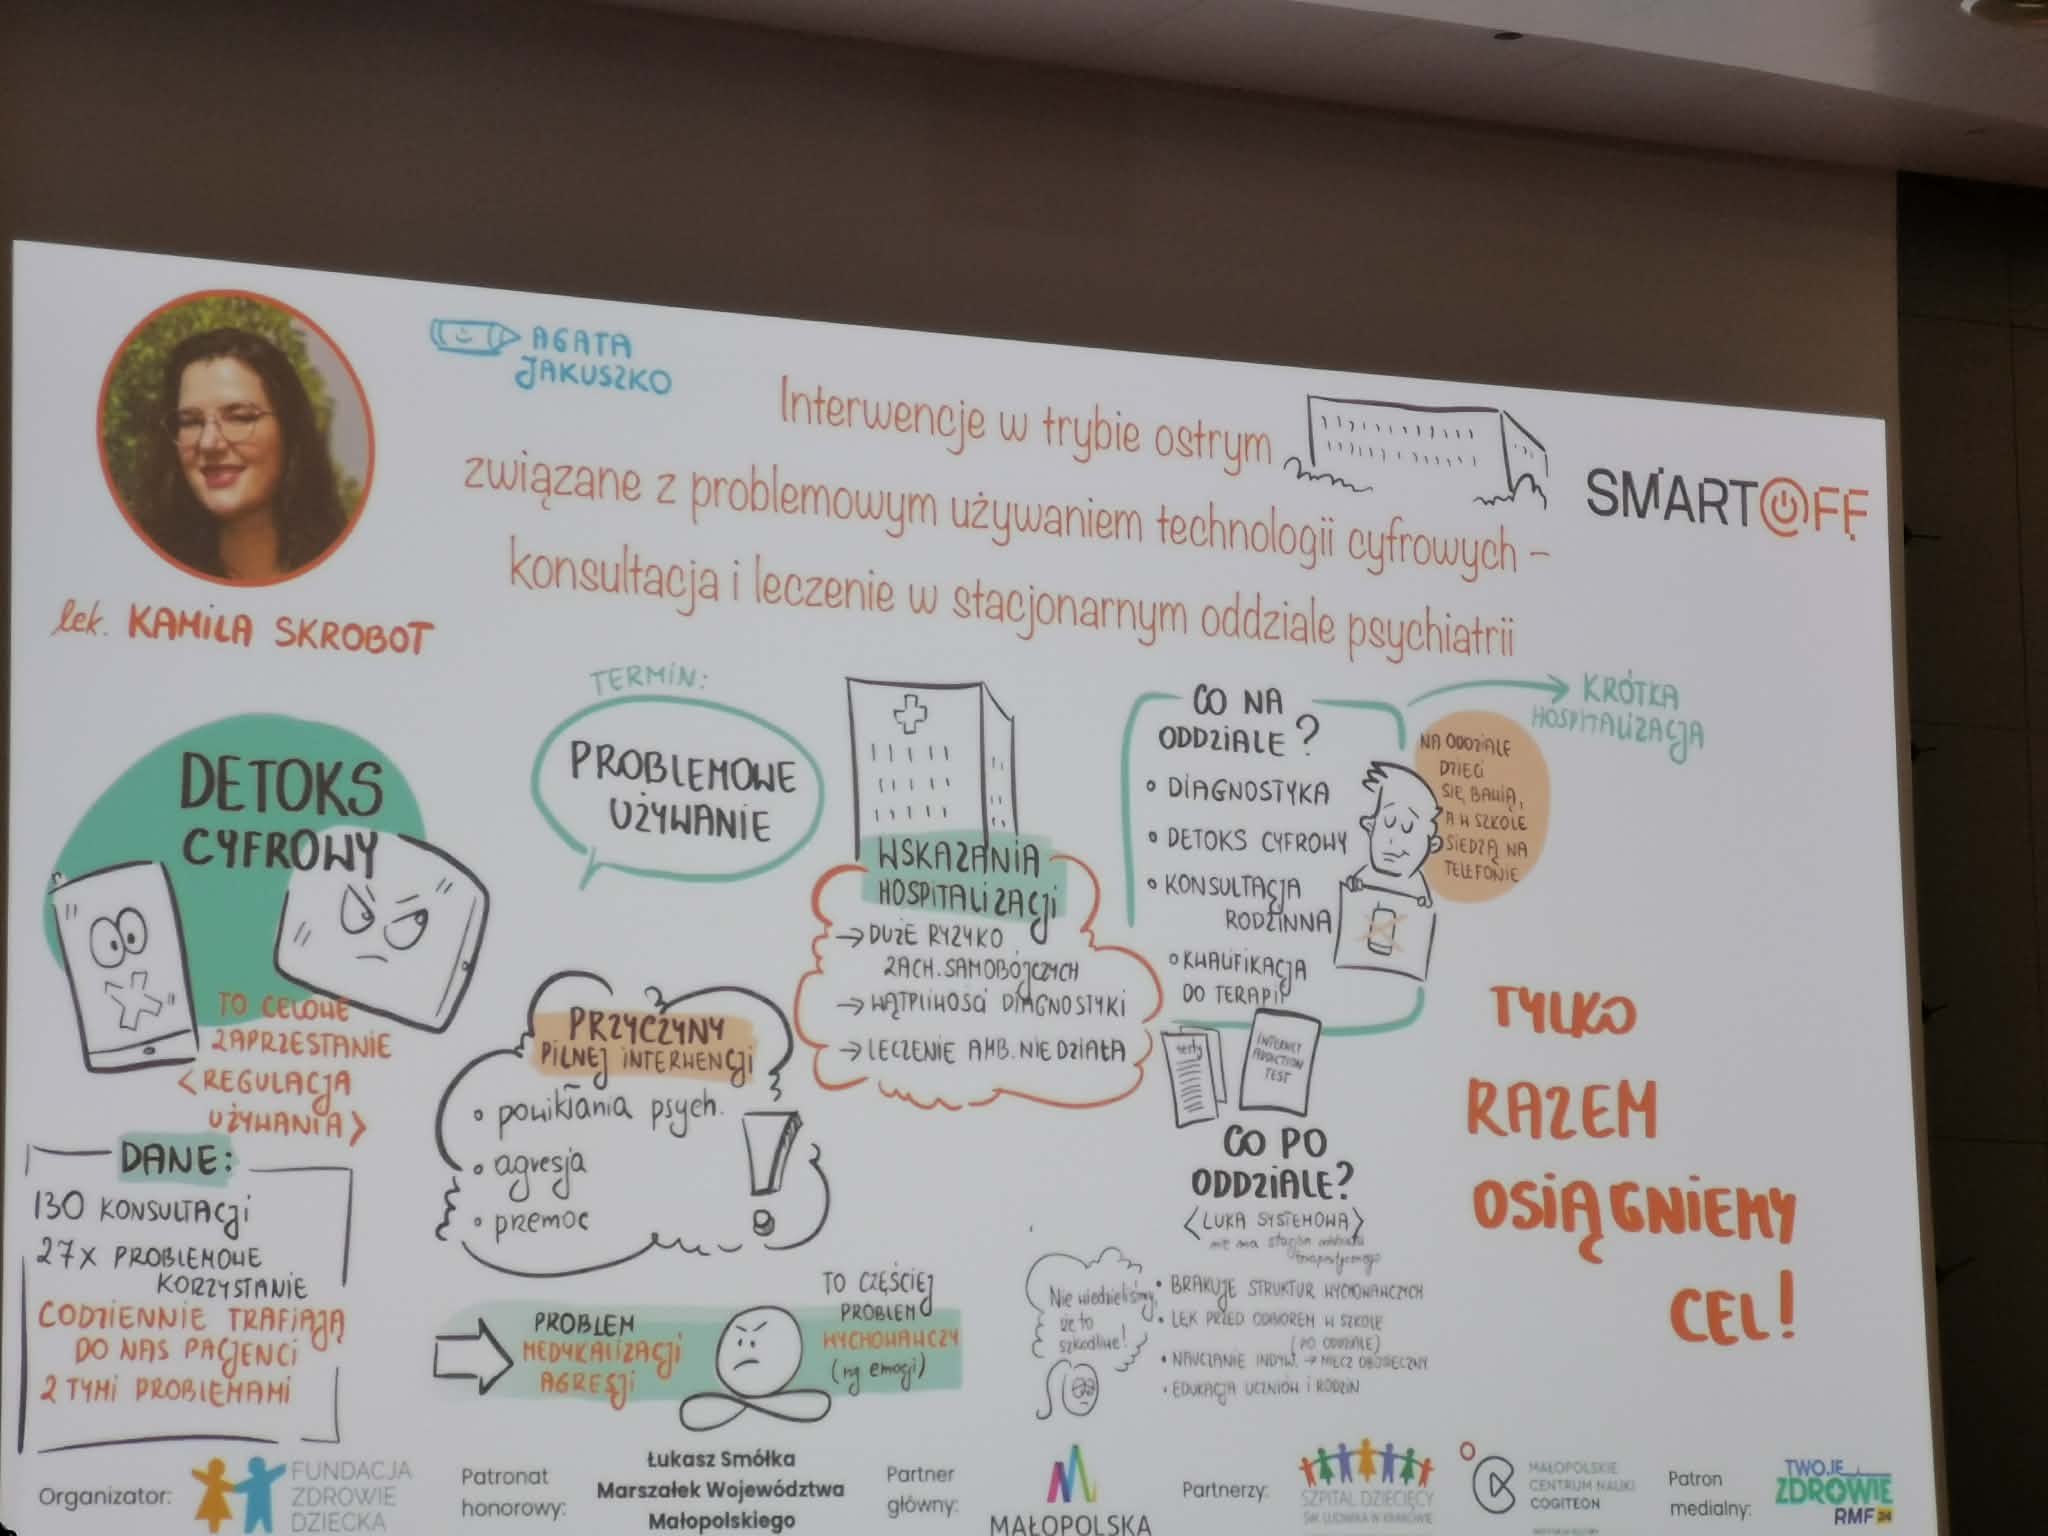 AGATA
JAKUSZKO
Interwencje w trybie ostrym
związane z problemowym używaniem technologii cyfrowych –
konsultacja i leczenie w stacjonarnym oddziale psychiatrii
SMARTOFF
lek. KAMILA SKROBOT
DETOKS
CYFROWY
TO CELOWE
ZAPRZESTANIE
<REGULACJA
UŻYWANIA>
DANE:
130 KONSULTACJI
27X PROBLEMOWE
KORZYSTANIE
CODZIENNIE TRAFIAJĄ
DO NAS PACJENCI
Z TYMI PROBLEMAMI
TERMIN:
PROBLEMOWE
UŻYWANIE
PRZYCZYNY
PILNEJ INTERWENCJI
• powikłania psych.
• agresja
• przemoc
WSKAZANIA
HOSPITALIZACJI
→ DUŻE RYZYKO
ZACH. SAMOBÓJCZYCH
→ WĄTPLIWOŚCI DIAGNOSTYKI
→ LECZENIE AMB. NIE DZIAŁA
PROBLEM
MEDYKALIZACJI
AGRESJI
TO CZĘŚCIEJ
PROBLEM
WYCHOWAWCZY
(reg emocji)
CO NA
ODDZIALE?
• DIAGNOSTYKA
• DETOKS CYFROWY
• KONSULTACJA
RODZINNA
• KWALIFIKACJA
DO TERAPII
KRÓTKA
HOSPITALIZACJA
NA ODDZIALE
DZIECI
SIĘ BAWIĄ,
A W SZKOLE
SIEDZĄ NA
TELEFONIE
testy
INTERNET
ADDICTION
TEST
CO PO
ODDZIALE?
<LUKA SYSTEMOWA>
nie ma
terapeutycznego
Nie wiedzieliśmy,
że to
szkodliwe!
• BRAKUJE STRUKTUR WYCHOWAWCZYCH
• LĘK PRZED ODBIOREM W SZKOLE
(PO ODDZIALE)
• NAUCZANIE INDYW. → MIECZ OBOSIECZNY
• EDUKACJA UCZNIÓW I RODZIN
TYLKO
RAZEM
OSIĄGNIEMY
CEL!
Organizator:
FUNDACJA
ZDROWIE
DZIECKA
Patronat
honorowy:
Łukasz Smółka
Marszałek Województwa
Małopolskiego
Partner
główny:
MAŁOPOLSKA
Partnerzy:
SZPITAL DZIECIĘCY
ŚW. LUDWIKA W KRAKOWIE
MAŁOPOLSKIE
CENTRUM NAUKI
COGITEON
Patron
medialny:
TWOJE
ZDROWIE
RMF 24